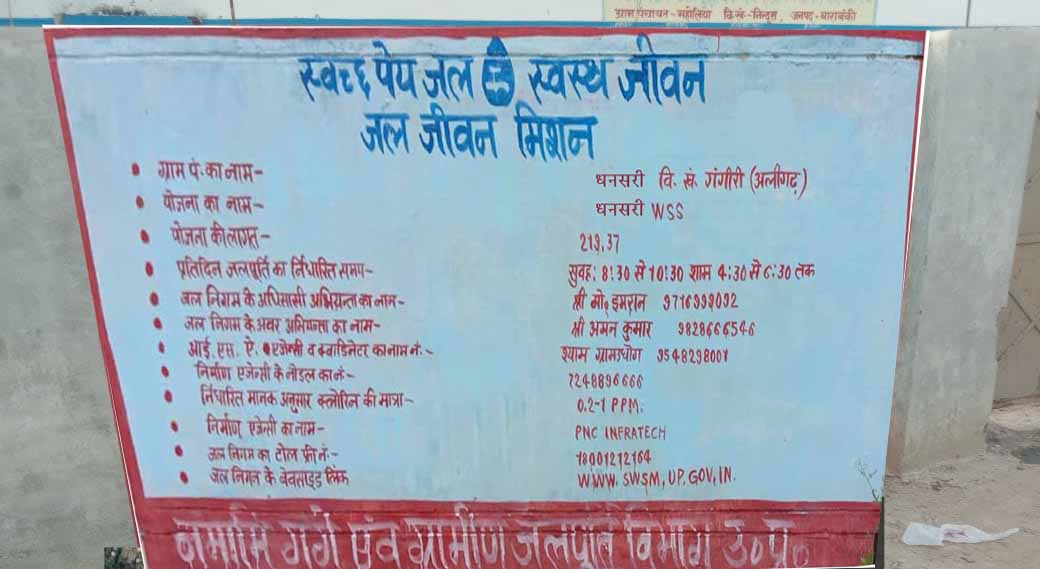 ग्राम पंचायत-महोलिया वि.खं.-निन्दूरा, जनपद-बाराबंकी
स्वच्छ पेय जल स्वस्थ जीवन
जल जीवन मिशन
• ग्राम पं. का नाम- धनसरी वि. खं. गंगीरी (अलीगढ़)
• योजना का नाम- धनसरी WSS
• योजना की लागत- 219.37
• प्रतिदिन जलपूर्ति का निर्धारित समय- सुवह: 8:30 से 10:30 शाम 4:30 से 6:30 तक
• जल निगम के अधिसासी अभियन्ता का नाम- श्री मो. इमरान 9716999092
• जल निगम के अवर अभियन्ता का नाम- श्री अमन कुमार 9828666546
• आई. एस. ऐ. एजेन्सी व क्वाडिनेटर का नाम नं.- श्याम ग्रामउधोग 9548298001
• निर्माण एजेन्सी के नोडल का नं.- 7248896666
• निर्धारित मानक अनुसार क्लोरिन की मात्रा- 0.2-1 PPM.
• निर्माण एजेन्सी का नाम- PNC INFRATECH
• जल निगम का टोल फ्री नं.- 18001212164
• जल निगम के बेवसाइड लिंक WWW. SWSM, UP. GOV, IN.
नमामि गंगे एंव ग्रामीण जलपूर्ति विभाग उ०प्र०